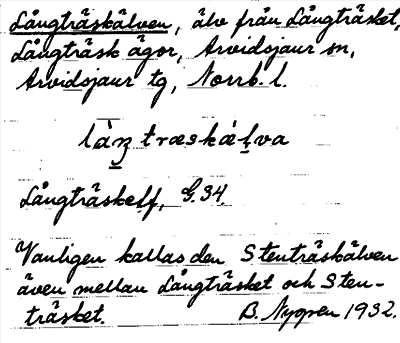 Långträskälven, älv från Långträsket,
Långträsk ägor, Arvidsjaur sn,
Arvidsjaur tg, Norrb. l.
làŋ træskä́ḷva
Långträskelf, G.34.
Vanligen kallas den Stenträskälven
även mellan Långträsket och Sten-
träsket. B. Nygren 1932.